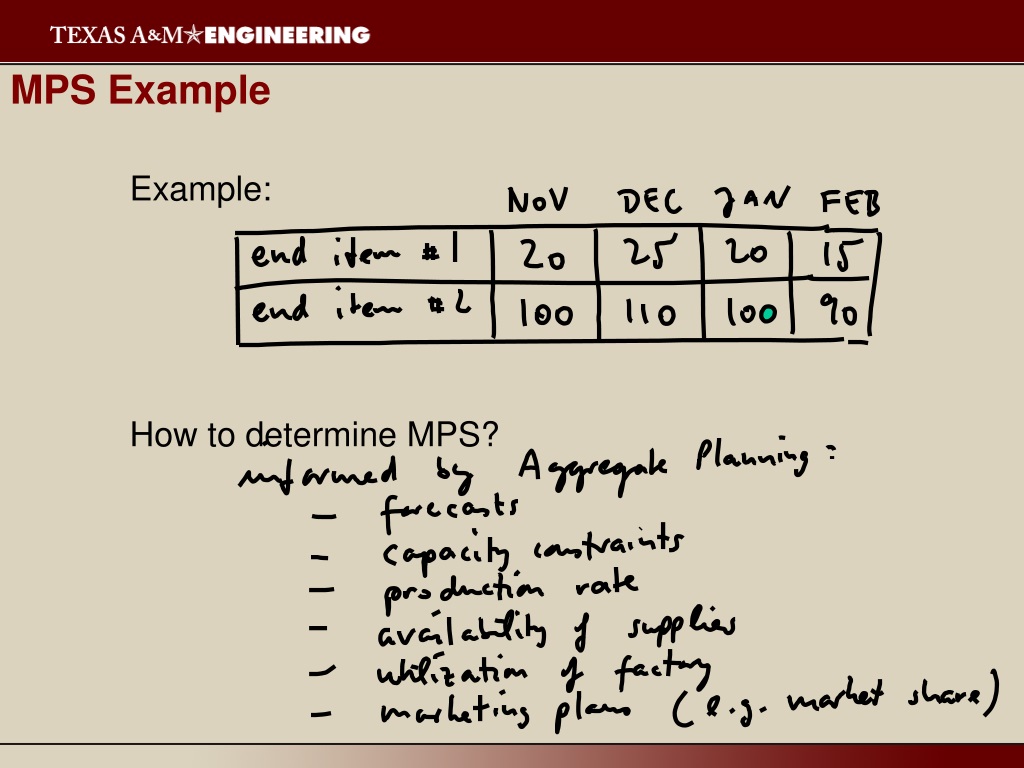 TEXAS A&M ENGINEERING
MPS Example
Example:
NOV DEC JAN FEB
end item #1 20 25 20 15
end item #2 100 110 100 90
How to determine MPS?
informed by Aggregate Planning:
– forecasts
– capacity constraints
– production rate
– availability of supplies
– utilization of factory
– marketing plans (e.g. market share)